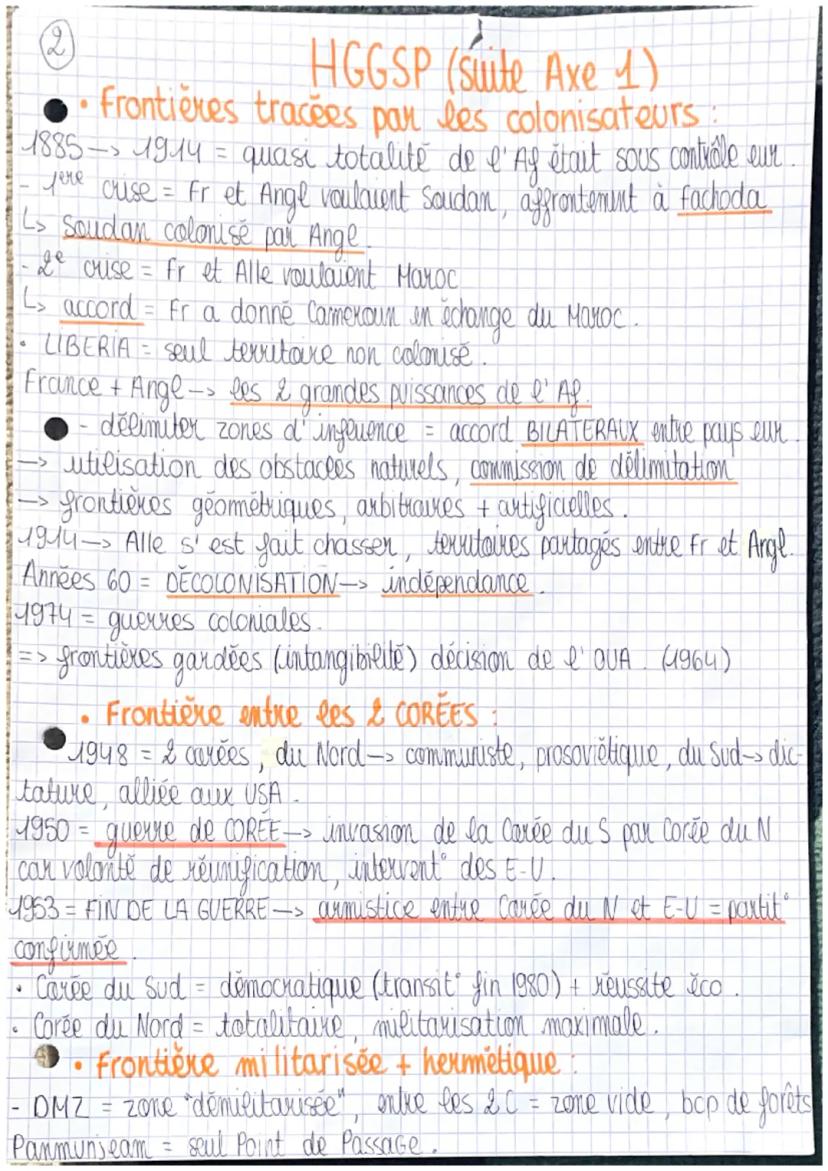 2
HGGSP (suite Axe 1)
• Frontières tracées par les colonisateurs :
1885 -> 1914 = quasi totalité de l'Af était sous contrôle eur.
- 1ère crise = Fr et Angl voulaient Soudan, affrontement à fachoda
↳ Soudan colonisé par Angl.
- 2e crise = Fr et Alle voulaient Maroc
↳ accord = Fr a donné Cameroun en échange du Maroc.
• LIBERIA = seul territoire non colonisé.
France + Angl -> les 2 grandes puissances de l'Af.
- délimiter zones d'influence = accord BILATERAUX entre pays eur.
-> utilisation des obstacles naturels, commission de délimitation
-> frontières géométriques, arbitraires + artificielles.
1914 -> Alle s'est fait chasser, territoires partagés entre Fr et Angl.
Années 60 = DÉCOLONISATION -> indépendance.
1974 = guerres coloniales.
=> frontières gardées (intangibilité) décision de l'OUA. (1964)
• Frontière entre les 2 CORÉES :
1948 = 2 corées, du Nord -> communiste, prosoviétique, du Sud -> dic-
tature, alliée aux USA.
1950 = guerre de CORÉE -> invasion de la Corée du S par Corée du N
car volonté de réunification, intervent° des E-U.
1953 = FIN DE LA GUERRE -> armistice entre Corée du N et E-U = partit°
confirmée.
• Corée du Sud = démocratique (transit° fin 1980) + réussite éco.
• Corée du Nord = totalitaire, militarisation maximale.
• Frontière militarisée + hermétique :
- DMZ = zone "démilitarisée", entre les 2 C = zone vide, bcp de forêts
Panmunjeam = seul Point de Passage.